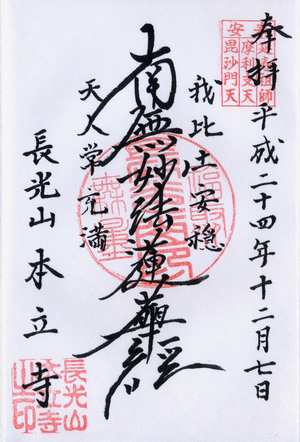 奉拝 平成二十四年十二月七日
我此土安穏
南無妙法蓮華経
天人常充満
長光山 本立寺
安毘沙門天
摩利支天
長光山
本立寺
之印